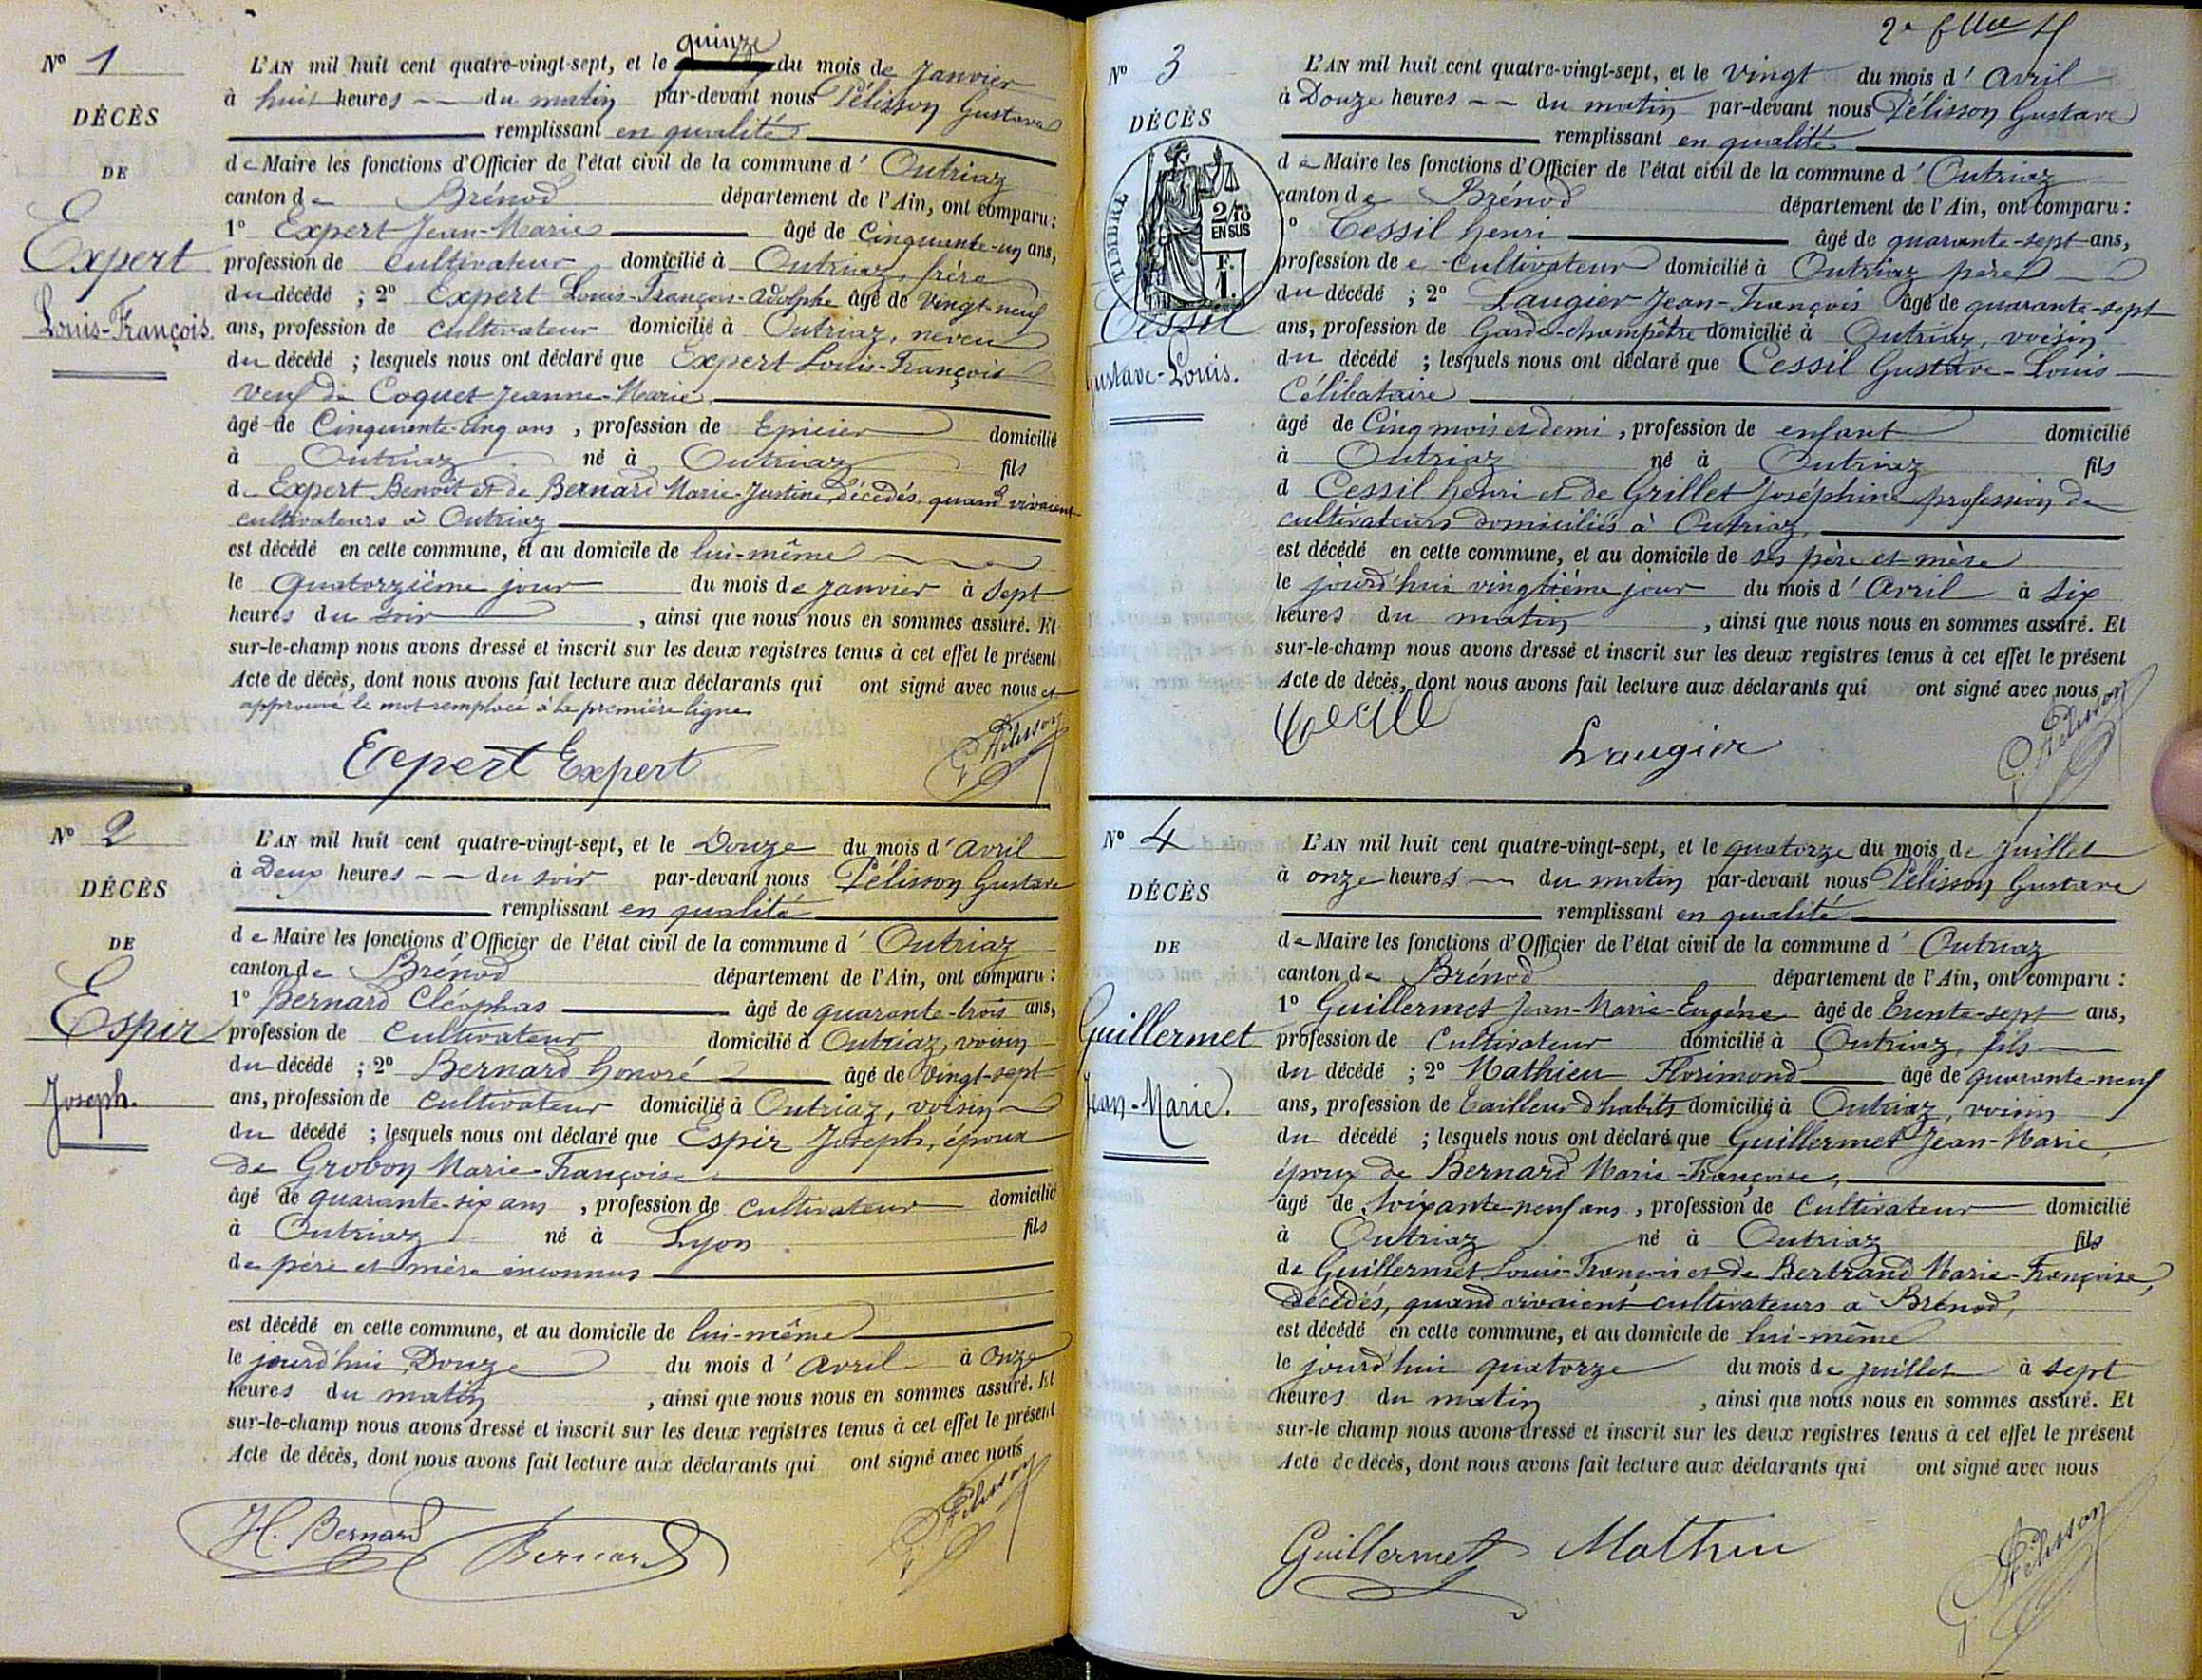 Nº 1
DÉCÈS
DE
Expert
Louis-François.
quinze
L'AN mil huit cent quatre-vingt-sept, et le du mois de Janvier
à huit heures du matin par-devant nous Pélisson Gustave
remplissant en qualité
de Maire les fonctions d'Officier de l'état civil de la commune d' Outriaz
canton de Brénod département de l'Ain, ont comparu :
1º Expert Jean-Marie âgé de Cinquante-un ans,
profession de cultivateur domicilié à Outriaz, frère
du décédé ; 2º Expert Louis-François-Adolphe âgé de vingt-neuf
ans, profession de cultivateur domicilié à Outriaz, neveu
du décédé ; lesquels nous ont déclaré que Expert Louis-François
veuf de Coquet Jeanne-Marie,
âgé de Cinquante-cinq ans, profession de Epicier domicilié
à Outriaz né à Outriaz fils
de Expert Benoît et de Bernard Marie-Justine, décédés, quand vivaient
cultivateurs à Outriaz
est décédé en cette commune, et au domicile de lui-même
le quatorzième jour du mois de Janvier à sept
heures du soir, ainsi que nous nous en sommes assuré. Et
sur-le-champ nous avons dressé et inscrit sur les deux registres tenus à cet effet le présent
Acte de décès, dont nous avons fait lecture aux déclarants qui ont signé avec nous et
approuvé le mot remplacé à la première ligne
Expert Expert
G. Pélisson
Nº 2
DÉCÈS
DE
Espir
Joseph.
L'AN mil huit cent quatre-vingt-sept, et le Douze du mois d' Avril
à Deux heures du soir par-devant nous Pélisson Gustave
remplissant en qualité
de Maire les fonctions d'Officier de l'état civil de la commune d' Outriaz
canton de Brénod département de l'Ain, ont comparu :
1º Bernard Cléophas âgé de quarante-trois ans,
profession de cultivateur domicilié à Outriaz, voisin
du décédé ; 2º Bernard Honoré âgé de vingt-sept
ans, profession de cultivateur domicilié à Outriaz, voisin
du décédé ; lesquels nous ont déclaré que Espir Joseph, époux
de Grobon Marie-Françoise
âgé de quarante-six ans, profession de cultivateur domicilié
à Outriaz né à Lyon fils
de père et mère inconnus
est décédé en cette commune, et au domicile de lui-même
le jourd'hui Douze du mois d' Avril à Onze
heures du matin, ainsi que nous nous en sommes assuré. Et
sur-le-champ nous avons dressé et inscrit sur les deux registres tenus à cet effet le présent
Acte de décès, dont nous avons fait lecture aux déclarants qui ont signé avec nous
H. Bernard Bernard
G. Pélisson
Nº 3
DÉCÈS
TIMBRE
2/10
EN SUS
F.
1.
Cessil
Gustave-Louis.
L'AN mil huit cent quatre-vingt-sept, et le vingt du mois d' Avril
à Douze heures du matin par-devant nous Pélisson Gustave
remplissant en qualité
de Maire les fonctions d'Officier de l'état civil de la commune d' Outriaz
canton de Brénod département de l'Ain, ont comparu :
º Cessil Henri âgé de quarante-sept ans,
profession de cultivateur domicilié à Outriaz père
du décédé ; 2º Laugier Jean-François âgé de quarante-sept
ans, profession de Garde-champêtre domicilié à Outriaz, voisin
du décédé ; lesquels nous ont déclaré que Cessil Gustave-Louis
Célibataire
âgé de Cinq mois et demi, profession de enfant domicilié
à Outriaz né à Outriaz fils
d Cessil Henri et de Grillet Joséphine profession de
cultivateurs domiciliés à Outriaz,
est décédé en cette commune, et au domicile de ses père et mère
le jourd'hui vingtième jour du mois d' Avril à six
heures du matin, ainsi que nous nous en sommes assuré. Et
sur-le-champ nous avons dressé et inscrit sur les deux registres tenus à cet effet le présent
Acte de décès, dont nous avons fait lecture aux déclarants qui ont signé avec nous
Laugier
G. Pélisson
Nº 4
DÉCÈS
DE
Guillermet
Jean-Marie.
L'AN mil huit cent quatre-vingt-sept, et le quatorze du mois de Juillet
à onze heures du matin par-devant nous Pélisson Gustave
remplissant en qualité
de Maire les fonctions d'Officier de l'état civil de la commune d' Outriaz
canton de Brénod département de l'Ain, ont comparu :
1º Guillermet Jean-Marie-Eugène âgé de Trente-sept ans,
profession de Cultivateur domicilié à Outriaz, fils
du décédé ; 2º Mathieu Florimond âgé de quarante-neuf
ans, profession de Tailleur d'habits domicilié à Outriaz, voisin
du décédé ; lesquels nous ont déclaré que Guillermet Jean-Marie,
époux de Bernard Marie-Françoise,
âgé de Soixante-neuf ans, profession de Cultivateur domicilié
à Outriaz né à Outriaz fils
de Guillermet Louis-François et de Bertrand Marie-Françoise,
Décédés, quand vivaient cultivateurs à Brénod,
est décédé en cette commune, et au domicile de lui-même
le jourd'hui quatorze du mois de juillet à sept
heures du matin, ainsi que nous nous en sommes assuré. Et
sur-le champ nous avons dressé et inscrit sur les deux registres tenus à cet effet le présent
Acte de décès, dont nous avons fait lecture aux déclarants qui ont signé avec nous
Guillermet Mathieu
G. Pélisson